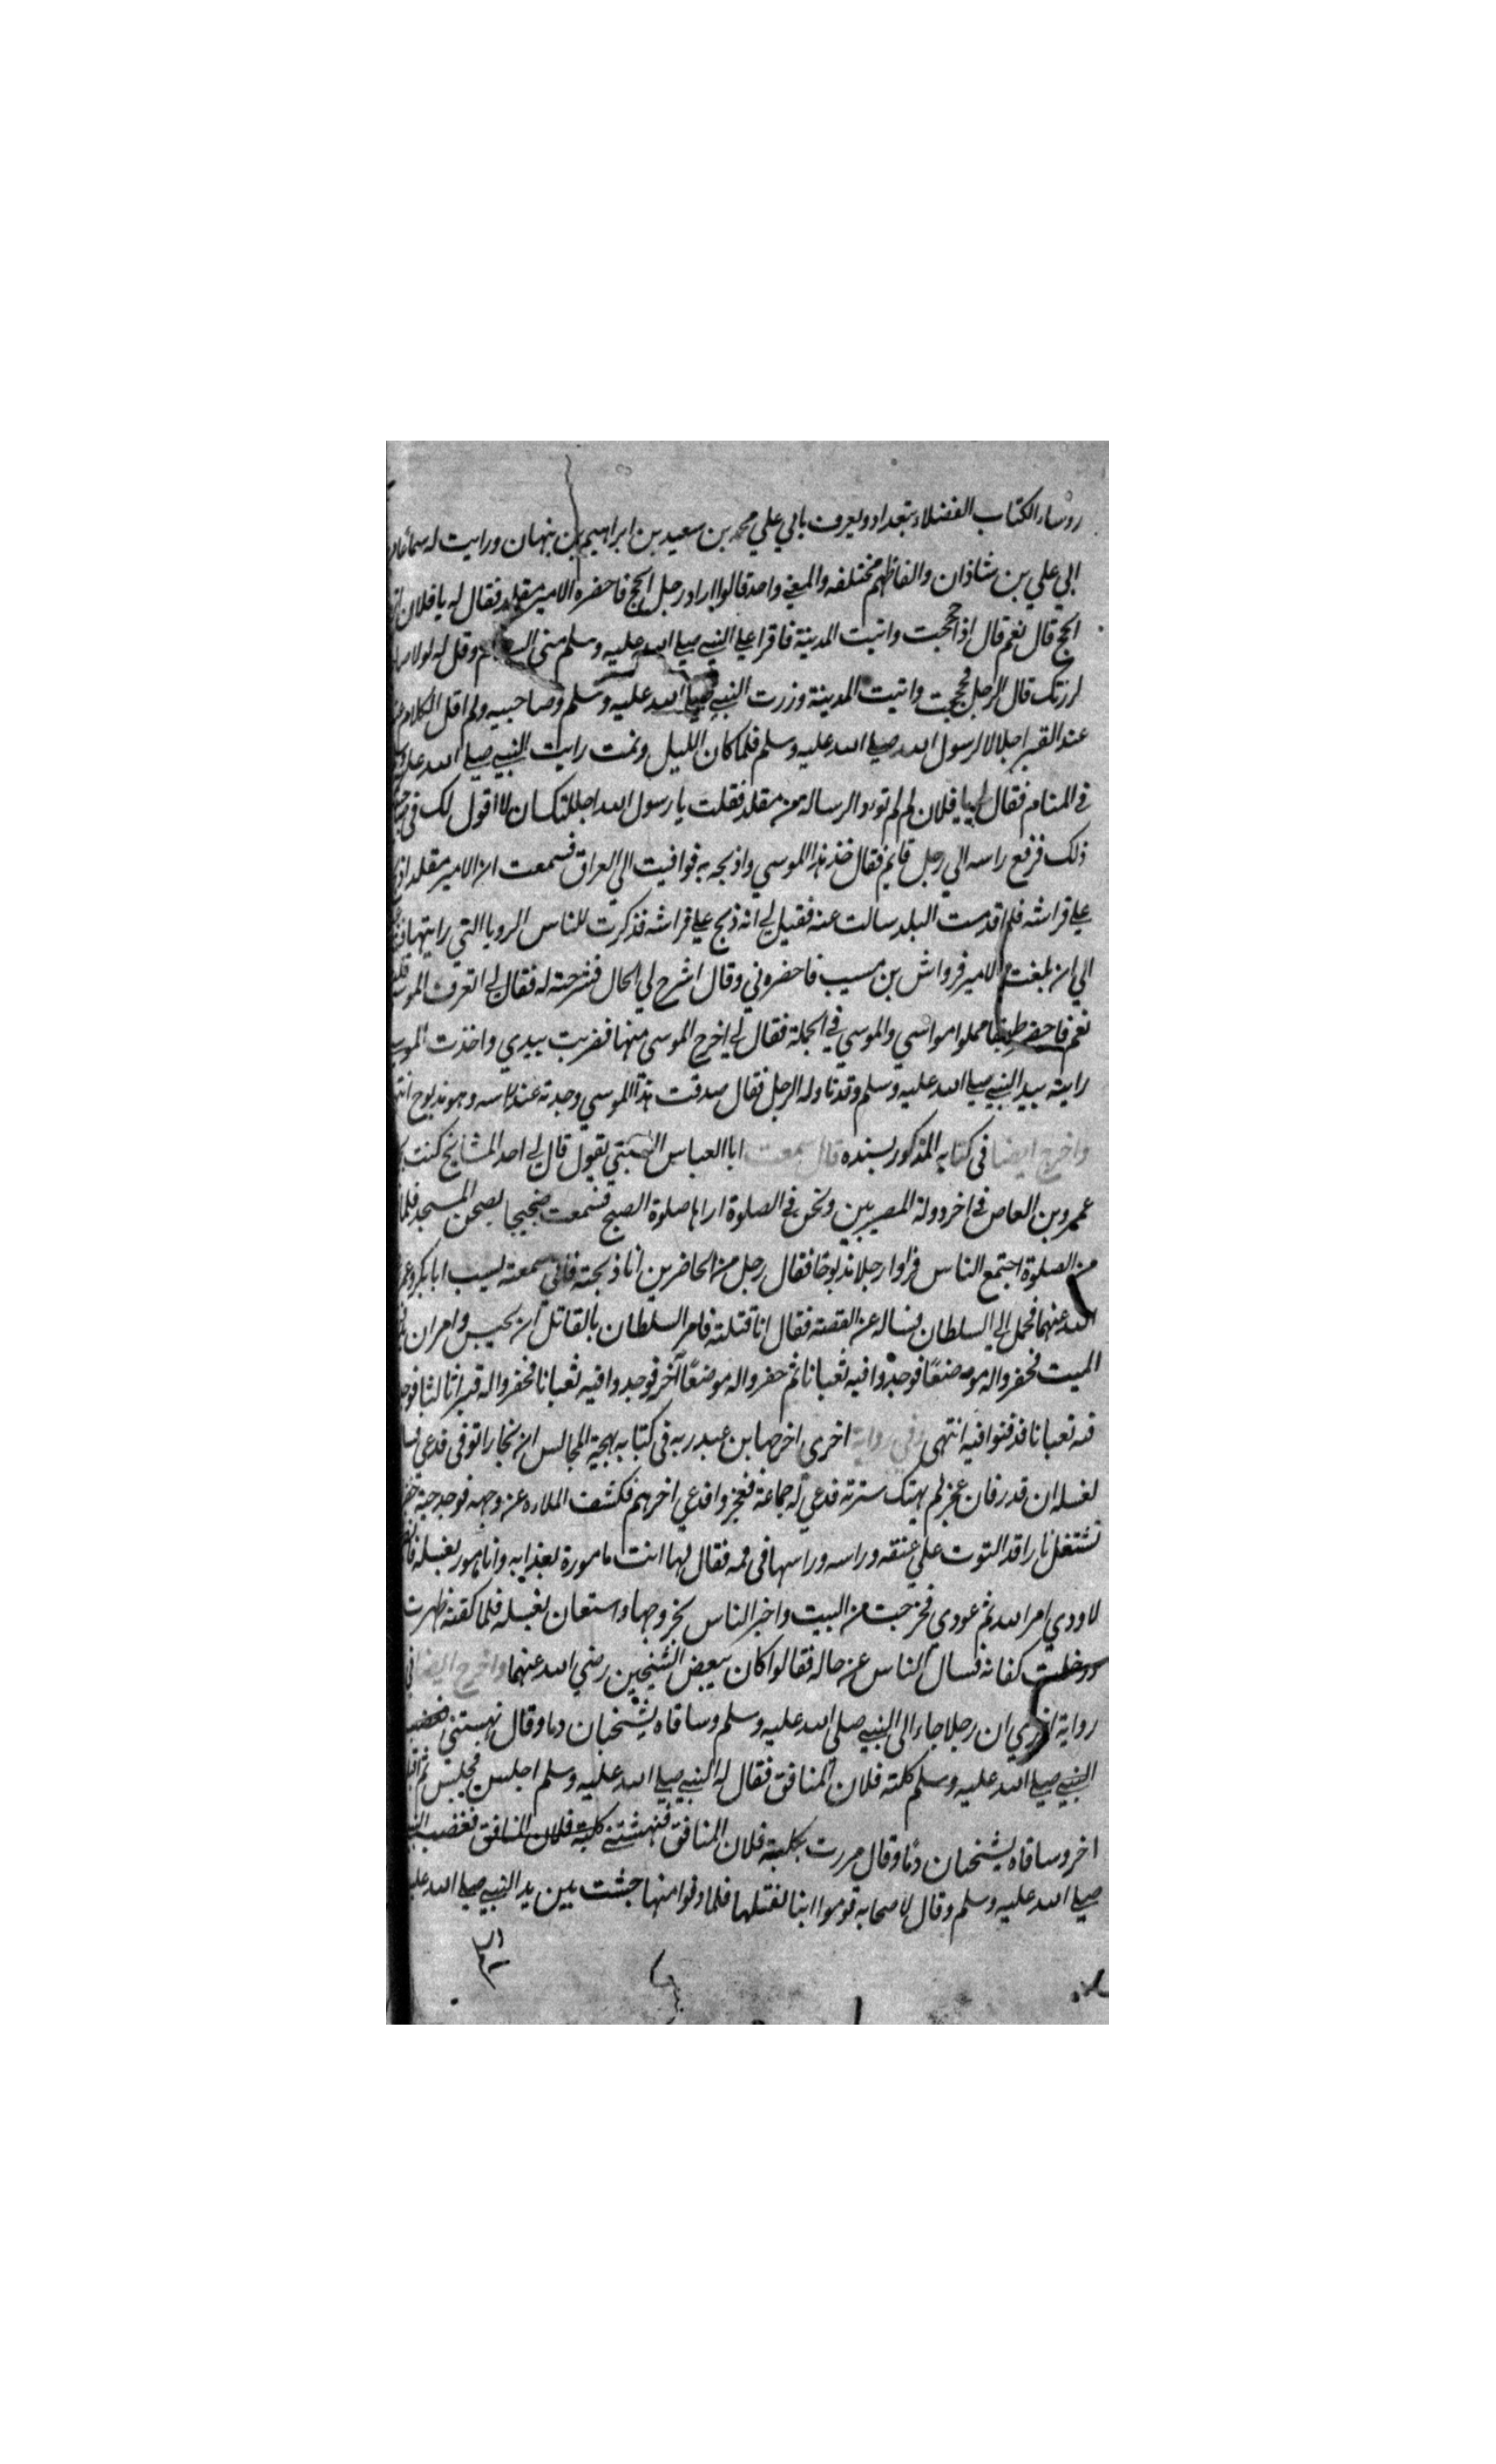 روساء الكتاب الفضلاء ببغداد ويعرف بابي علي محمد بن سعيد بن ابراهيم بن نبهان ورايت له سماعا
ابي علي بن شاذان والفاظهم مختلفه والمعني واحد قالوا اراد رجل الحج فاحضره الامير مقلد فقال له يا فلان
الحج قال نعم قال اذا حججت واتيت المدينة فاقرا علي النبي صلي الله عليه وسلم مني السلام وقل له لولا
لزرتك قال الرجل فحججت واتيت المدينة وزرت النبي صلي الله عليه وسلم وصاحبيه ولم اقل الكلام
عند القبر اجلالا لرسول الله صلي الله عليه وسلم فلما كان الليل ونمت رايت النبي صلي الله عليه
في المنام فقال لي يا فلان لم لم تود الرساله من مقلد فقلت يا رسول الله اجللتك ان لا اقول لك في
ذلك فرفع راسه الي رجل قايم فقال خذ هذا الموسي واذبحه به فوافيت الي العراق فسمعت ان الامير مقلد
علي فراشه فلما قدمت البلد سالت عنه فقيل لي انه ذبح علي فراشه فذكرت للناس الرويا التي رايتها
الي ان بلغت الامير قرواش بن مسيب فاحضرني وقال اشرح لي الحال فشرحته له فقال لي اتعرف الموسي
نعم فاحضر طبقا مملوا مواسي والموسي في الجملة فقال لي اخرج الموسي منها فضربت بيدي واخذت الموسي
رايته بيد النبي صلي الله عليه وسلم وقد ناوله الرجل فقال صدقت هذا الموسي وجدته عند راسه وهو مذبوح
واخرج ايضا في كتابه المذكور بسنده قال سمعت ابا العباس يقول قال لي احد المشايخ كنت
عمرو بن العاص في اخر دولة المصريين ونحن في الصلوة اراها صلوة الصبح فسمعت ضجيجا بصحن المسجد فلما
من الصلوة اجتمع الناس فراوا رجلا مذبوحا فقال رجل من الحاضرين انا ذبحته فاني سمعته يسب ابا بكر وعمر
الله عنهما فحمل الي السلطان فساله عن القصة فقال انا قتلته فامر السلطان بالقاتل ان يحبس وامر ان
الميت فحفروا له موضعًا فوجدوا فيه ثعبانا ثم حفروا له موضعًا آخر فوجدوا فيه ثعبانا فحفروا له قبرا ثالثا
فيه ثعبانا فدفنوا فيه انتهي وفي رواية اخري اخرجها ابن عبد ربه في كتابه بهجة المجالس ان نجارا توفي فدعي
لغسله ان قدر فان عجز لم يهتك سترته فدعي له جماعة فعجزوا فدعي اخرهم فكشف الملاءه عن وجهه فوجد حية
تشتعل نارا قد التوت علي عنقه وراسه وراسها في فمه فقال لها انت مامورة بعذابه وانا مامور بغسله
لاودي امر الله ثم عودي فخرجت من البيت واخبر الناس بخروجها واستعان بغسله فلما كفنه ظهرت
ودخلت كفانه فسال الناس عن حاله فقالوا كان يبغض الشيخين رضي الله عنهما واخرج ايضا في
رواية اخري ان رجلا جاء الي النبي صلي الله عليه وسلم وساقاه يشخبان دما وقال نهستني
النبي صلي الله عليه وسلم كلبة فلان المنافق فقال له النبي صلي الله عليه وسلم اجلس فجلس ثم
اخر وساقاه يشخبان دمًا وقال مررت بكلبة فلان المنافق فنهشتني كلبة فلان المنافق فغضب
صلي الله عليه وسلم وقال لاصحابه قوموا بنا لقتلها فلما دنوا منها جثت بين يد النبي صلي الله عليه